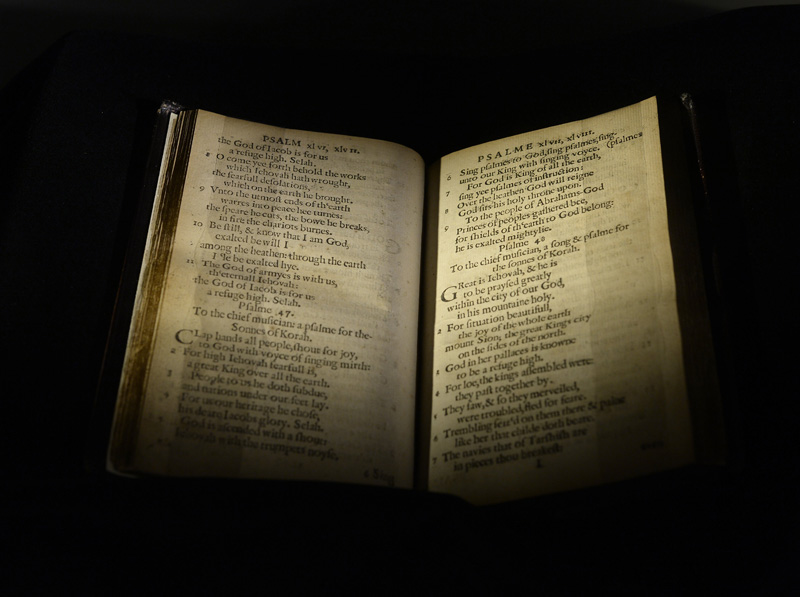 PSALM xlvi, xlvii.
the God of Iacob is for us
a refuge high. Selah.
8 O come yee forth behold the works
which Iehovah hath wrought,
the fearfull desolations,
which on the earth he brought.
9 Vnto the utmost ends of th'earth
warres into peace hee turnes:
the speare he cuts, the bowe he breaks,
in fire the chariots burnes.
10 Be still, & know that I am God,
exalted be will I
among the heathen: through the earth
I'le be exalted hye.
11 The God of armyes is with us,
th'eternall Iehovah:
the God of Iacob is for us
a refuge high. Selah.
Psalme 47.
To the chief musician: a psalme for the
Sonnes of Korah.
CLap hands all people, shout for joy,
to God with voyce of singing mirth:
2 For high Iehovah fearfull is,
a great King over all the earth.
3 People to us he doth subdue,
and nations under our feet lay.
4 For us our heritage he chose,
his deare Iacobs glory. Selah.
God is ascended with a shout:
Iehovah with the trumpets noyse.
6 Sing
PSALME xlvii, xlviii.
6 Sing psalmes to God, sing psalmes, sing
unto our King with singing voyce. (psalmes
7 For God is King of all the earth,
sing yee psalmes of instruction:
8 Over the heathen God will reigne
God sits his holy throne upon.
9 To the people of Abrahams God
Princes of peoples gathered bee,
for shields of th'earth to God belong:
he is exalted mightylie.
Psalme 48
To the chief musician, a song & psalme for
the sonnes of Korah.
GReat is Iehovah, & he is
to be praysed greatly
within the city of our God,
in his mountaine holy.
2 For situation beautifull,
the joy of the whole earth
mount Sion; the great Kings city
on the sides of the north.
3 God in her pallaces is knowne
to be a refuge high.
4 For loe, the kings assembled were:
they past together by.
5 They saw, & so they merveiled,
were troubled, fled for feare.
6 Trembling seiz'd on them there & paine
like her that childe doth beare.
7 The navies that of Tarshish are
in pieces thou breakest: